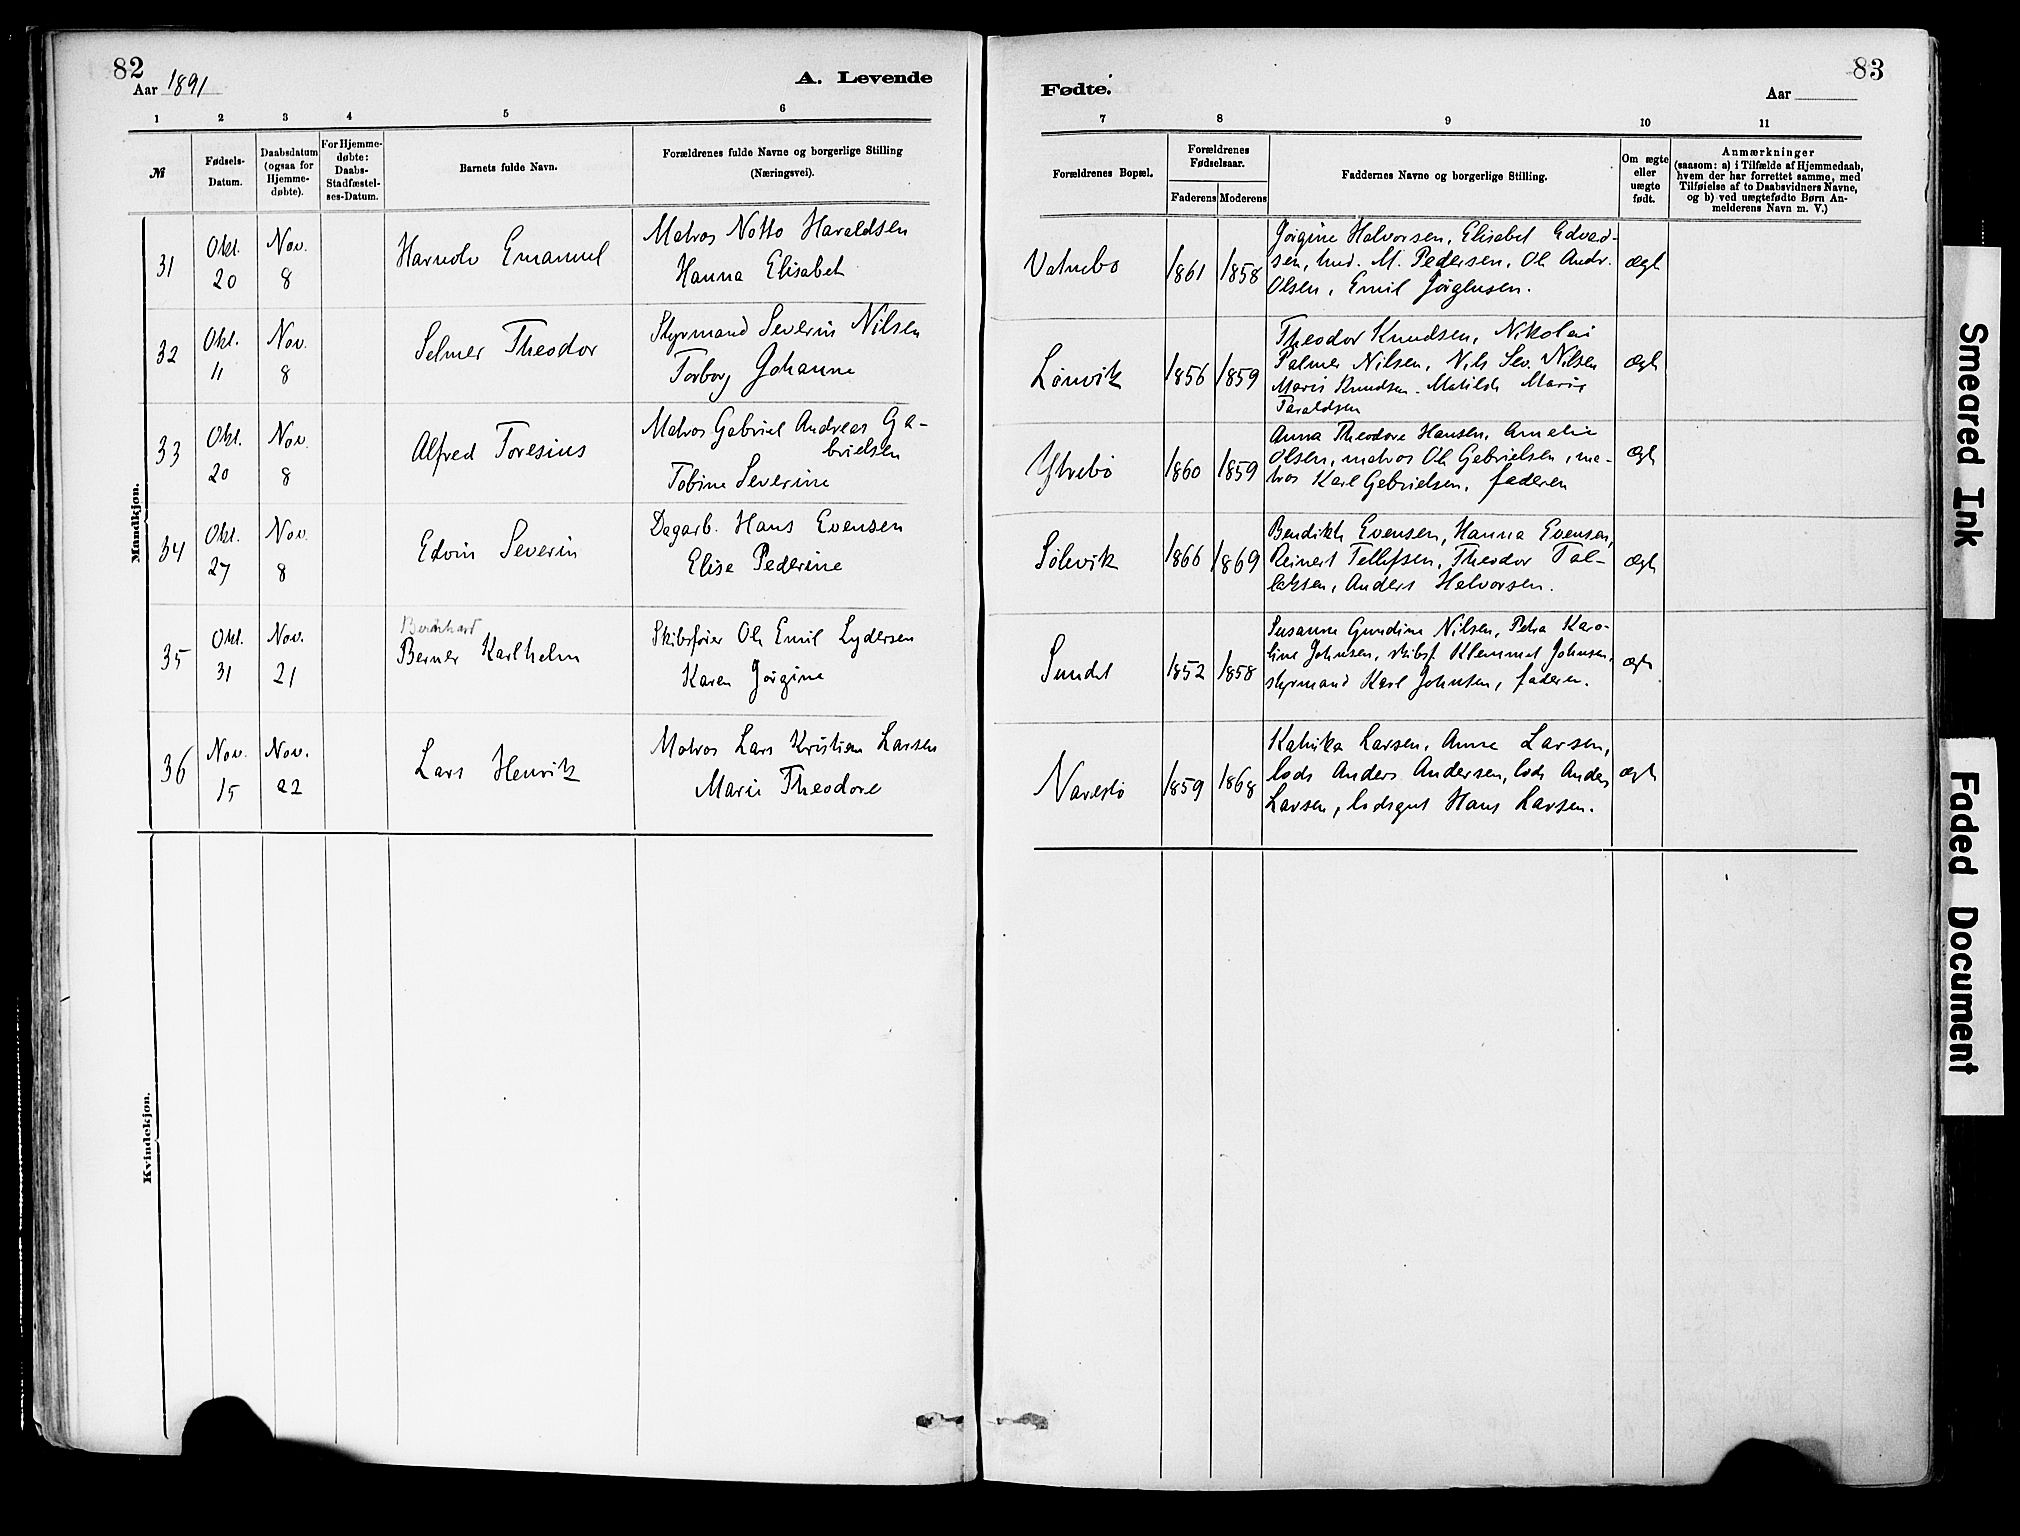 82
Aar 1891
A. Levende
1 2 3 4 5 6
№
Fødsels-
Datum.
Daabsdatum
(ogsaa for
Hjemme-
døbte).
For Hjemme-
døbte:
Daabs-
Stadfæstel-
ses-Datum.
Barnets fulde Navn.
Forældrenes fulde Navne og borgerlige Stilling
(Næringsvei).
Mandkjøn.
31
Okt.
20
Nov.
8
Harnolv Emanuel
Matros Notto Haraldsen
Hanna Elisabet
32
Okt.
11
Nov.
8
Selmer Theodor
Styrmand Severin Nilsen
Torborg Johanne
33
Okt.
20
Nov.
8
Alfred Toresius
Matros Gabriel Andreas Ga-
brielsen
Tobine Severine
34
Okt.
27
Nov.
8
Edvin Severin
Dagarb. Hans Evensen
Elise Pederine
35
Okt.
31
Nov.
21
Bernhard
Berner Karlhelm
Skibsfører Ole Emil Lydersen
Karen Jørgine
36
Nov.
15
Nov.
22
Lars Henrik
Matros Lars Kristian Larsen
Marie Theodore
Kvindekjøn.
83
Fødte.
Aar
7 8 9 10 11
Forældrenes Bopæl.
Forældrenes
Fødselsaar.
Faderens Moderens
Faddernes Navne og borgerlige Stilling.
Om ægte
eller
uægte
født.
Anmærkninger
(saasom: a) i Tilfælde af Hjemmedaab,
hvem der har forrettet samme, med
Tilføielse af to Daabsvidners Navne,
og b) ved uægtefødte Børn An-
melderens Navn m. V.)
Vatnebø
1861 1858
Jørgine Halvorsen, Elisabet Edvad-
sen, M. Pedersen, Ole Andr.
Olsen, Emil Jørgensen.
ægte
Lønvik
1856 1859
Theodor Knudsen, Nikolai
Palmer Nilsen, Nils Sev. Nilsen
Maris Knudsen. Matilde Marie
Taraldsen
ægte
Ytrebø
1860 1859
Anna Theodore Hansen, Amelie
Olsen, matros Ole Gabrielsen, ma-
tros Karl Gabrielsen, faderen
ægte
Sølevik
1866 1869
Bendikte Evensen, Hanna Evensen,
Reinert Tellefsen, Theodor Tal-
leksen, Anders Halvorsen.
ægte
Sundet
1852 1858
Susanne Gundine Nilsen, Petra Karo-
line Johnsen, skibsf. Klemmet Johnsen,
styrmand Karl Johnsen, faderen.
ægte
Narestø
1859 1868
Katrika Larsen, Anne Larsen,
lods Anders Andersen, lods Anders
Larsen, lodsgut Hans Larsen.
ægte
Smeared Ink
Faded Document